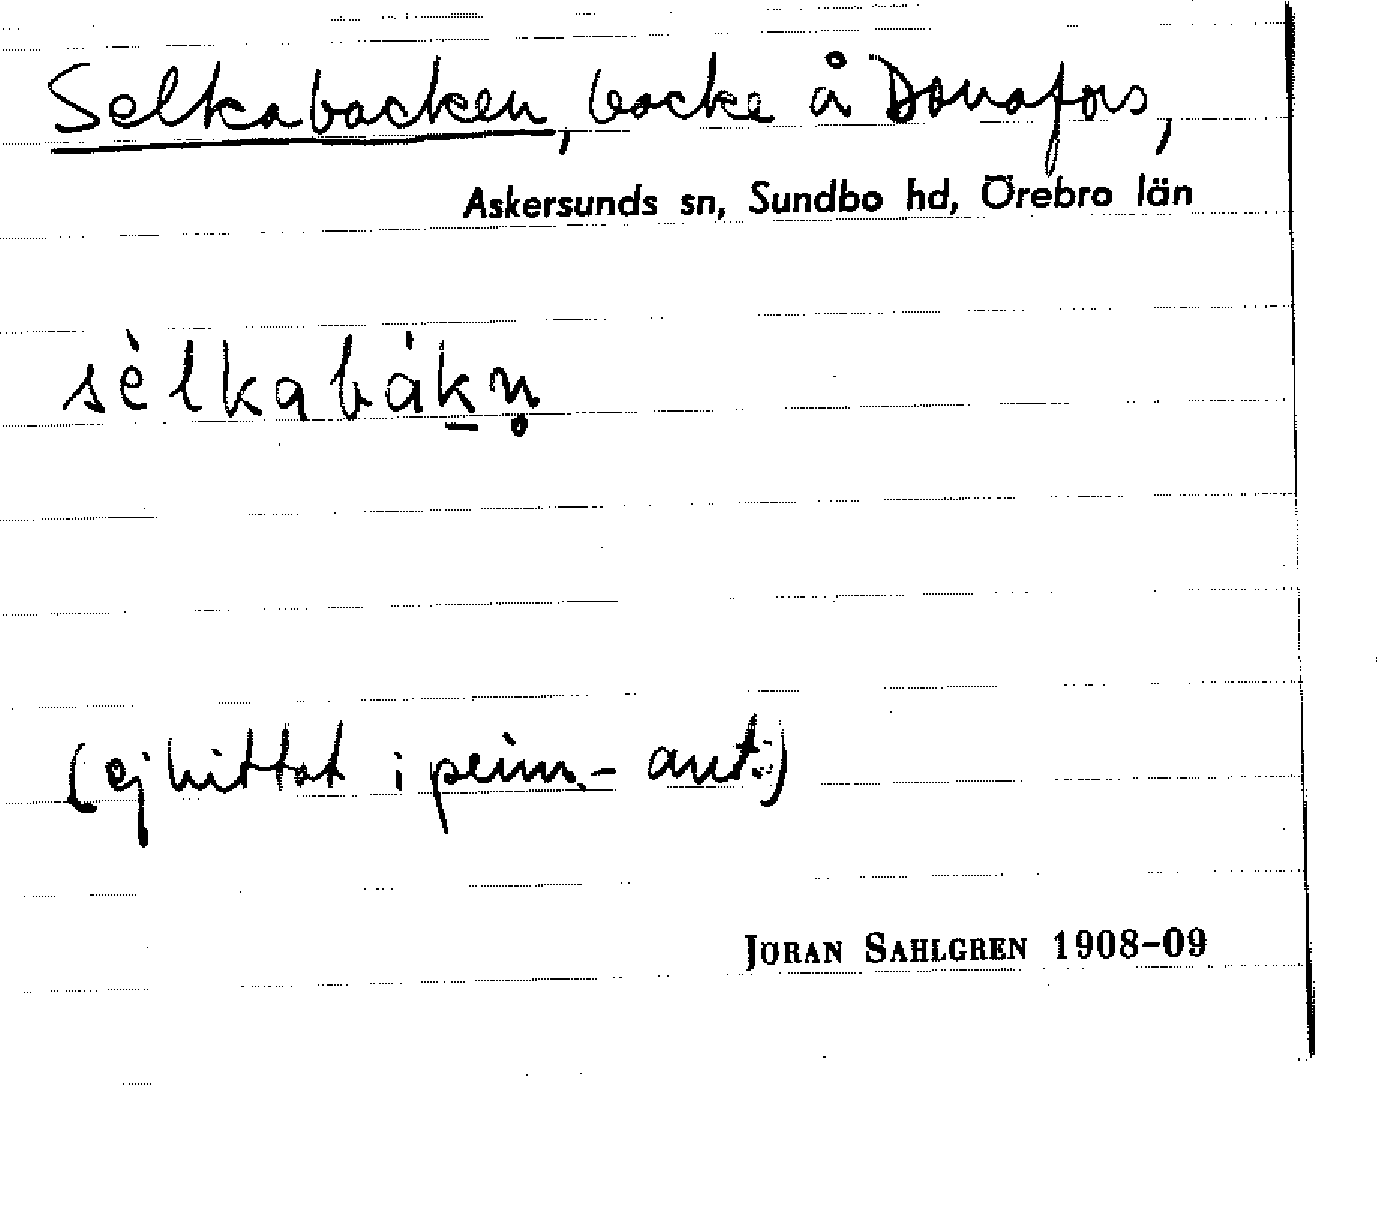 Selkabacken, backe å Donafors,
Askersunds sn, Sundbo hd, Örebro län
sèlkabákn̥
(ej hittat i prim.-ant.)
JÖRAN SAHLGREN 1908–09